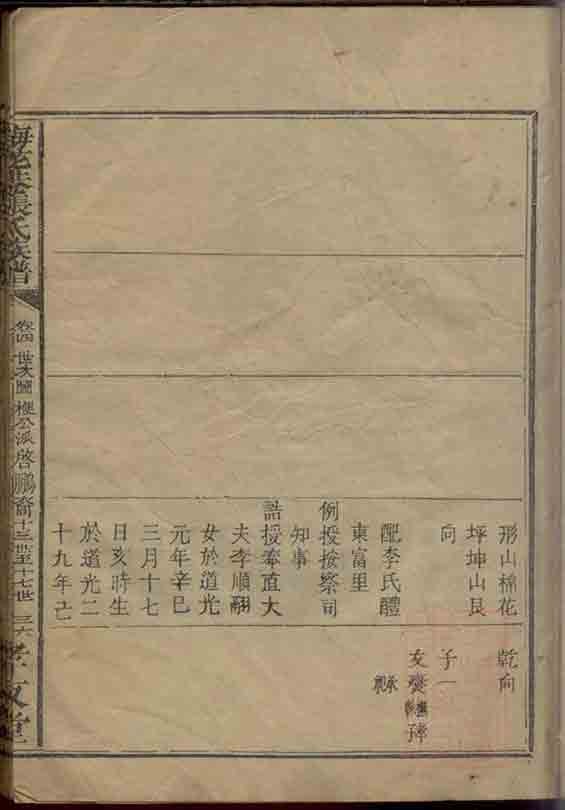 形山棉花
坪坤山艮
向
配李氏醴
東富里
例授按察司
知事
誥授奉直大
夫李順翮
女於道光
元年辛巳
三月十七
日亥時生
於道光二
十九年己
乾向
子一
友
張氏族譜
卷四 世次圖 公派啓鵬裔十三世至十七世 三六
孝友堂